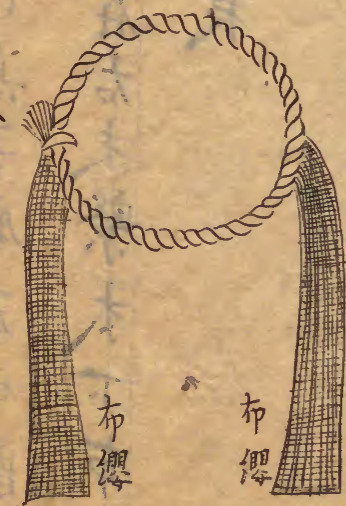 布纓
布纓